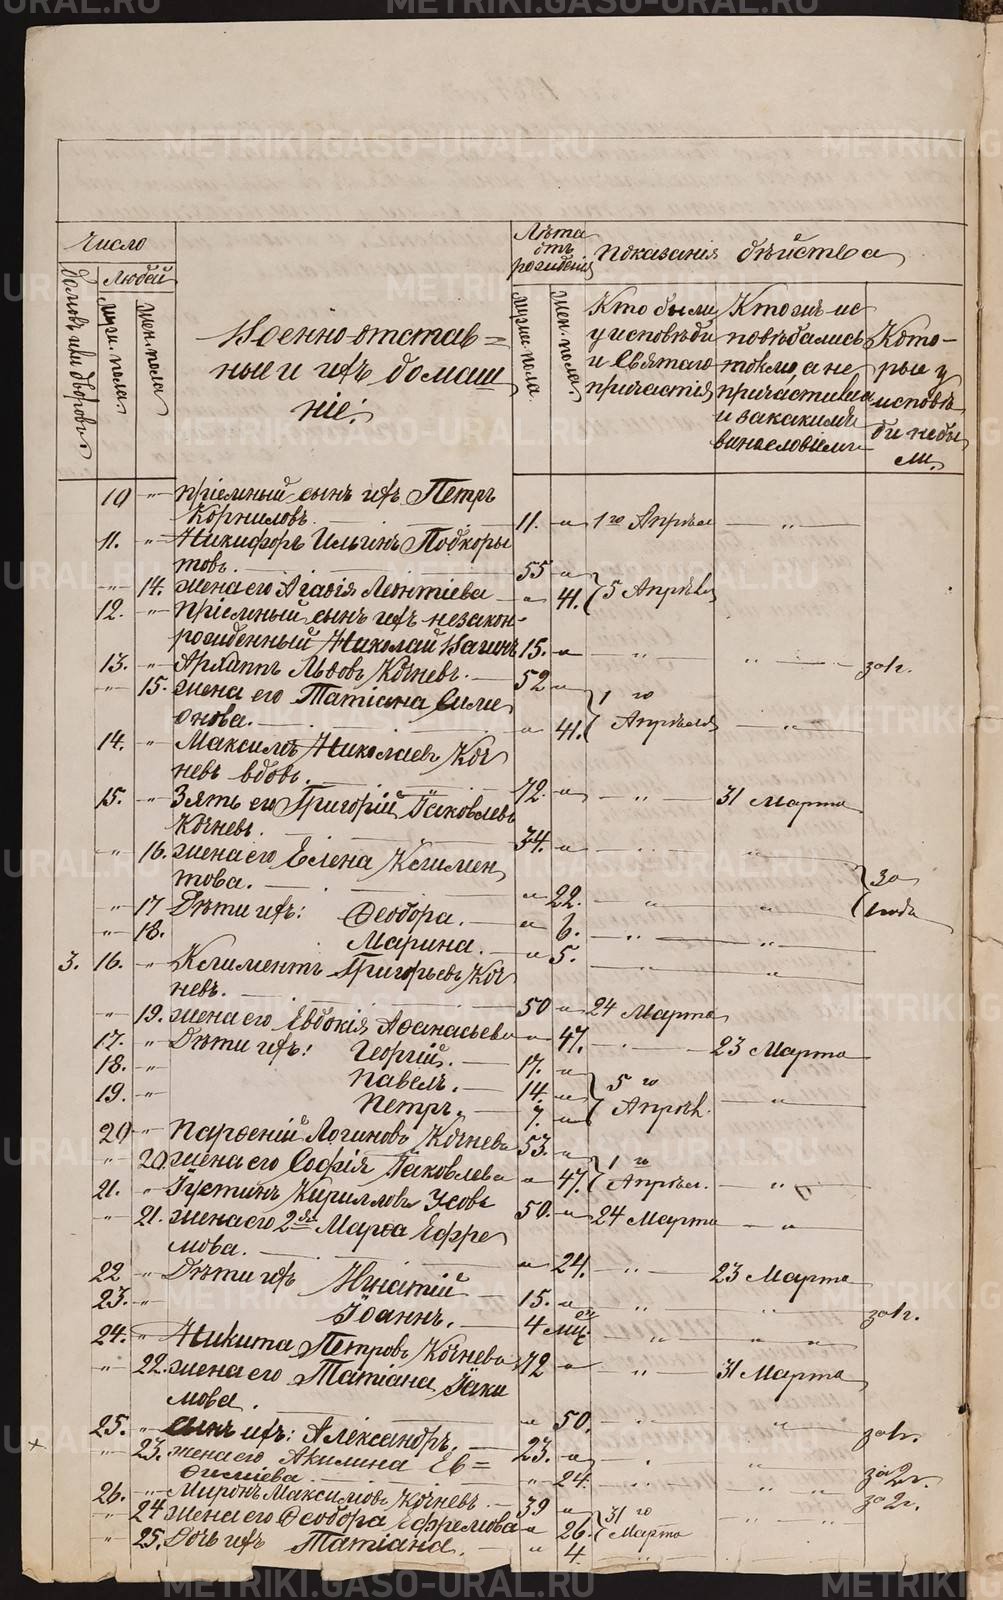 Число
Людей
домовъ или дворовъ
Муж. пола
Жен. пола
Военно-отстав=
ные и ихъ домаш
ніе:
Лѣта
отъ
рожденія
Мужск. пола
Жен. пола
Показанія дѣйства
Кто были
у исповѣди
и Святаго
причастія
Кто же ис
повѣдались
токмо, а не
причастились
и за какимъ
винословіемъ
Кото-
рые у
исповѣ
ди не бы
ли.
10 " пріемный сынъ ихъ Петръ
Корниловъ. 11. " 1го Апрѣля "
11. " Никифоръ Ильинъ Подкоры
товъ. 55 "
" 14. жена его Агафія Леонтіева " 41. 5 Апрѣля
12. " пріемный сынъ ихъ незакон-
норожденный Николай 15. " " " за 1г.
13. " Архиппъ Львовъ Кочневъ. 52 "
" 15. жена его Татіана Симе
онова. " 41. 1го Апрѣля "
14. " Максимъ Николаевъ Коч
невъ вдовъ. 72. " " 31 Марта
15. " Зять его Григорій Іаковлевъ
Кочневъ. 34. " " "
" 16. жена его Елена Климен
това. " 22. " " за
" 17 Дѣти ихъ: Ѳеодора. " 6. " " 2 года
" 18. Марина. " 5. " "
3. 16. " Климентъ Григорьевъ Коч
невъ. 50 " 24 Марта
" 19. жена его Евдокія Аѳанасьева " 47. " 23 Марта
17. " Дѣти ихъ: Георгій. 17. "
18. " Павелъ. 14. " 5го "
19. " Петръ. 7. " Апрѣл.
20 " Парѳеній Логиновъ Кочневъ 53. "
" 20. жена его Софія Іаковлева " 47. 1го Апрѣл. "
21. " Іустинъ Кирилловъ Усовъ 50. " 24 Марта "
" 21. жена его 2я Марѳа Ефре
мова. " 24. " 23 Марта
22 " Дѣти ихъ Игнатій 15. " " " за 1г.
23. " Іоаннъ. 4 мц. " " "
24. " Никита Петровъ Кочневъ 72 " " 31 Марта
" 22. жена его Татіана Іаки
мова. " 50. " "
25. " сынъ ихъ: Александръ. 23. " " " за 1г.
" 23. жена его Акилина Ев=
" 24. " " за 2г.
26. " Миронъ Максимовъ Кочневъ. 39 " за 2г.
" 24 жена его Ѳеодора Ефремова " 26. 31го Марта " "
" 25. Дочь ихъ Татіана. " 4. "
METRIKI.GASO-URAL.RU